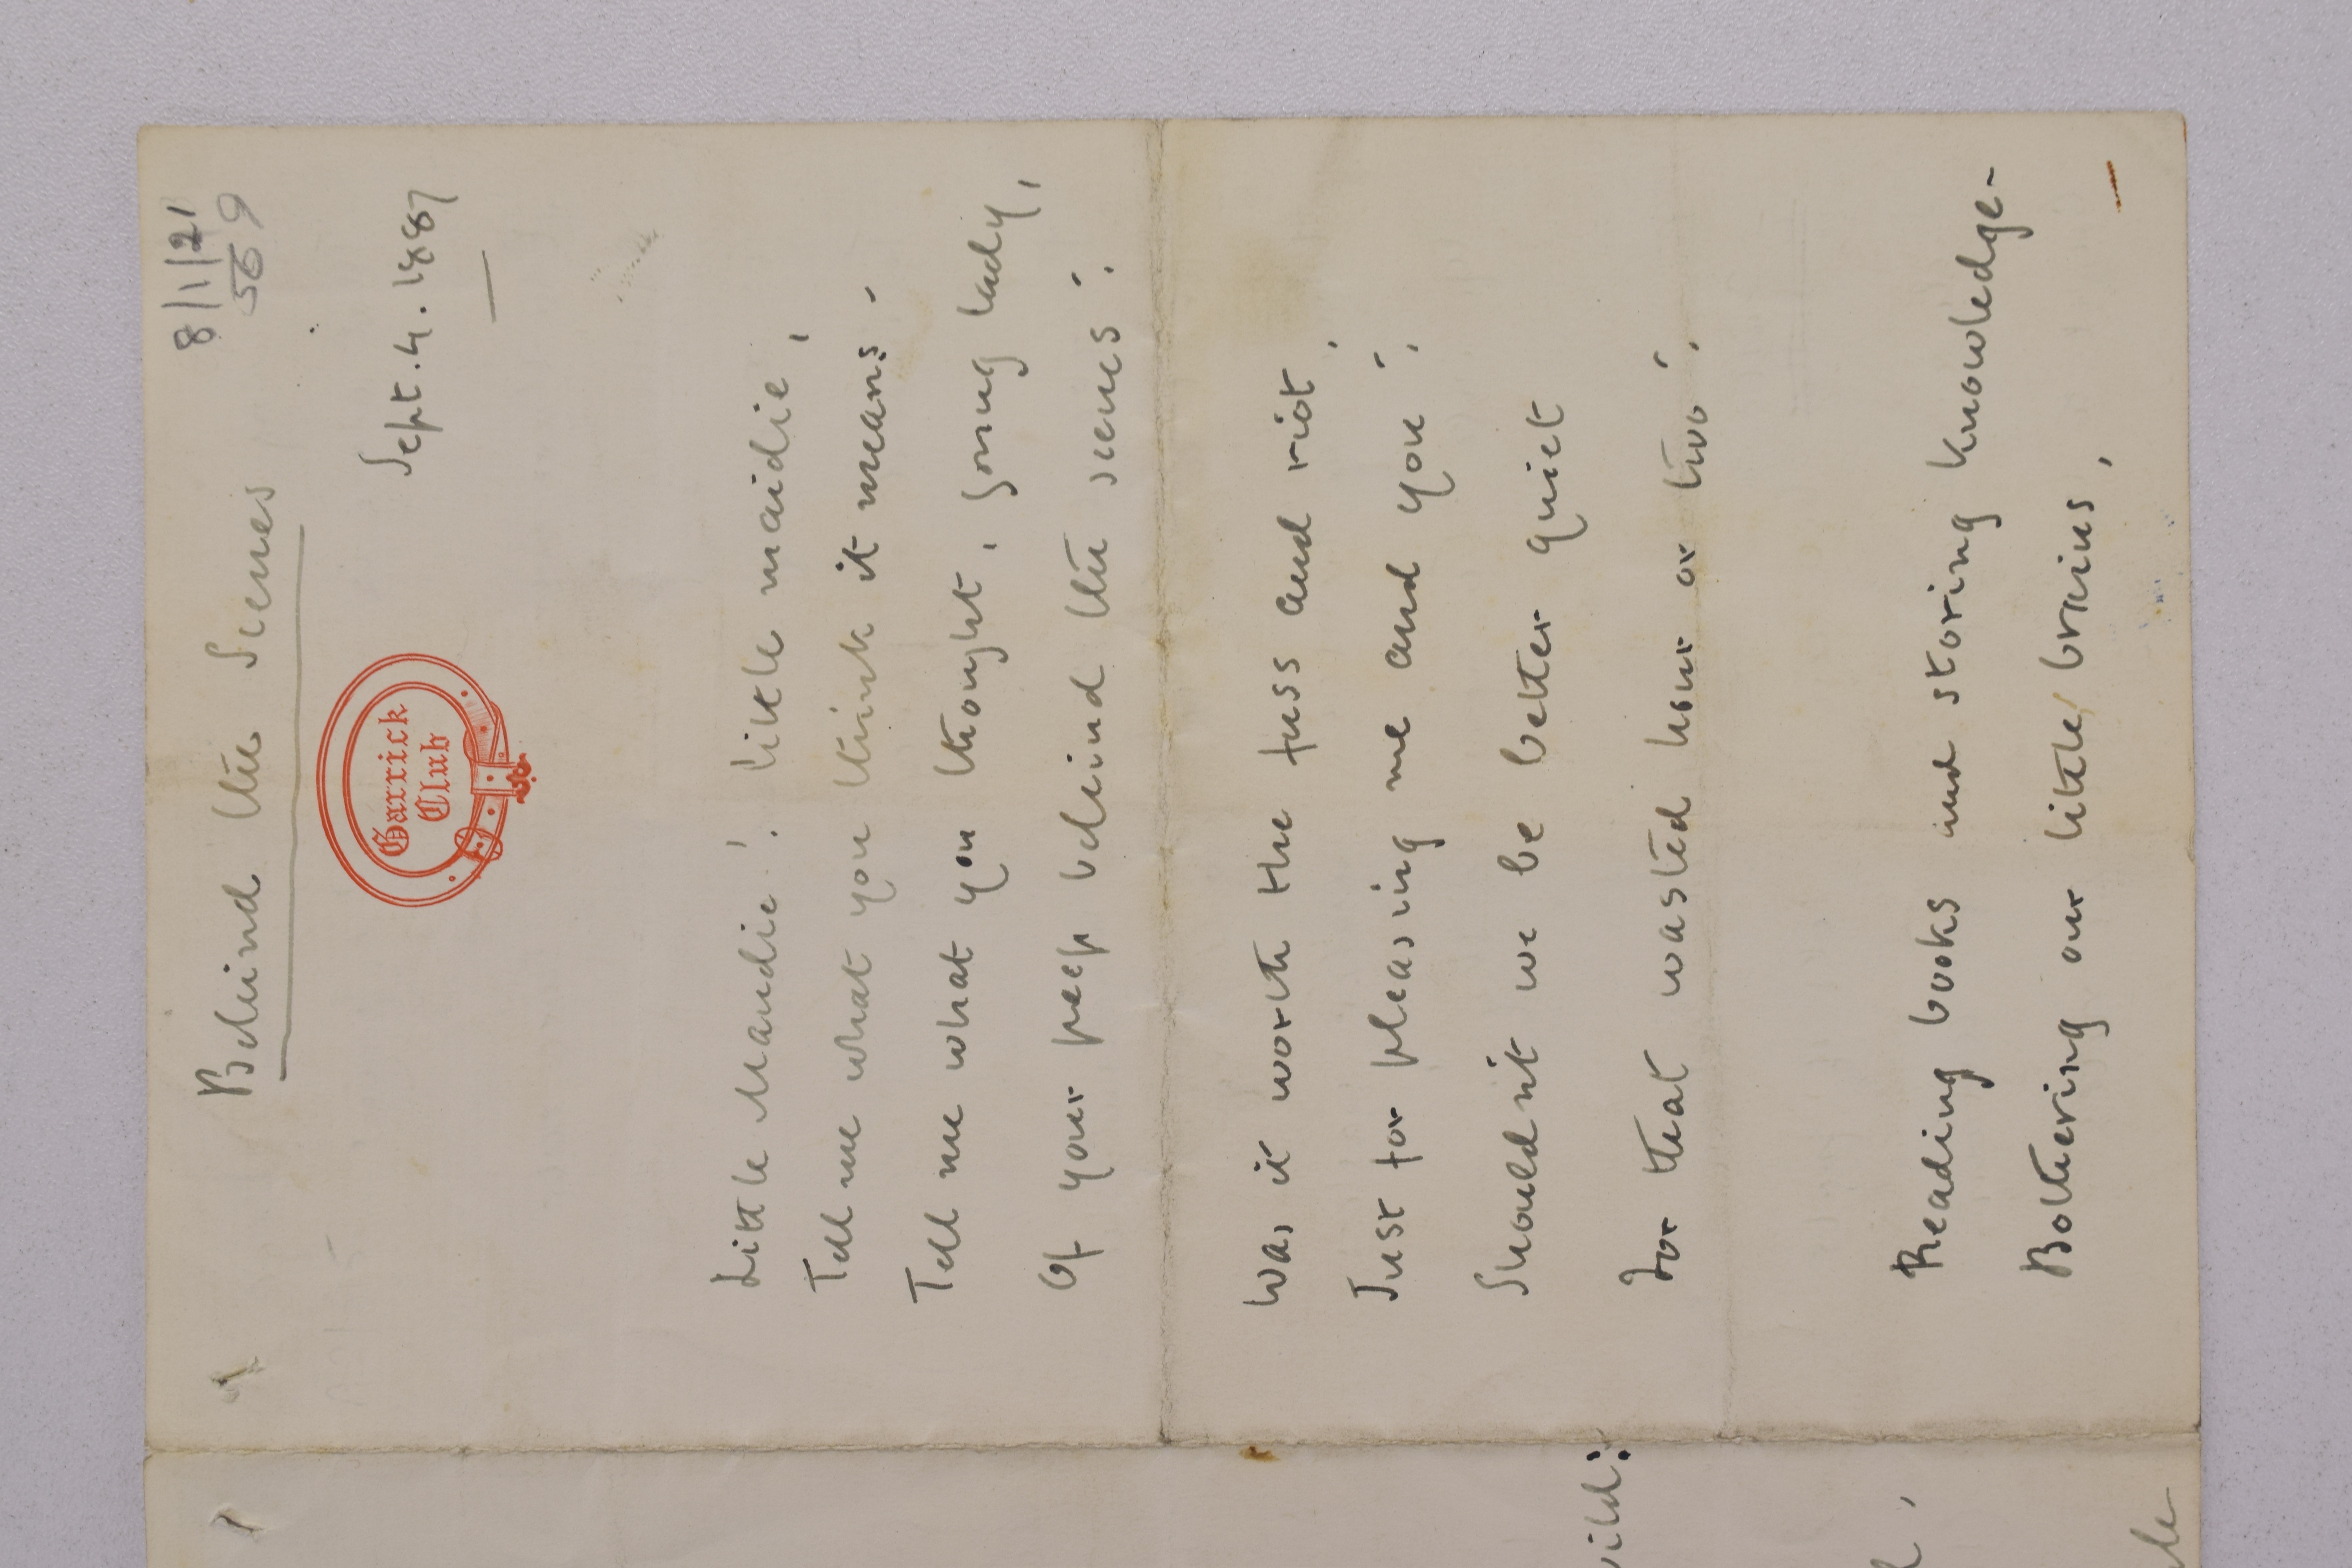 8/1/21
569
Behind the Scenes
Garrick
Club
Sept. 4. 1887
Little Maudie! little maidie,
Tell me what you think it means.
Tell me what you thought, young lady,
Of your peep behind the scenes!
Was it worth the fuss and riot,
Just for pleasing me and you!
Shouldn't we be better quiet
For that wasted hour or two!
Reading books and storing knowledge -
Bothering our little brains,